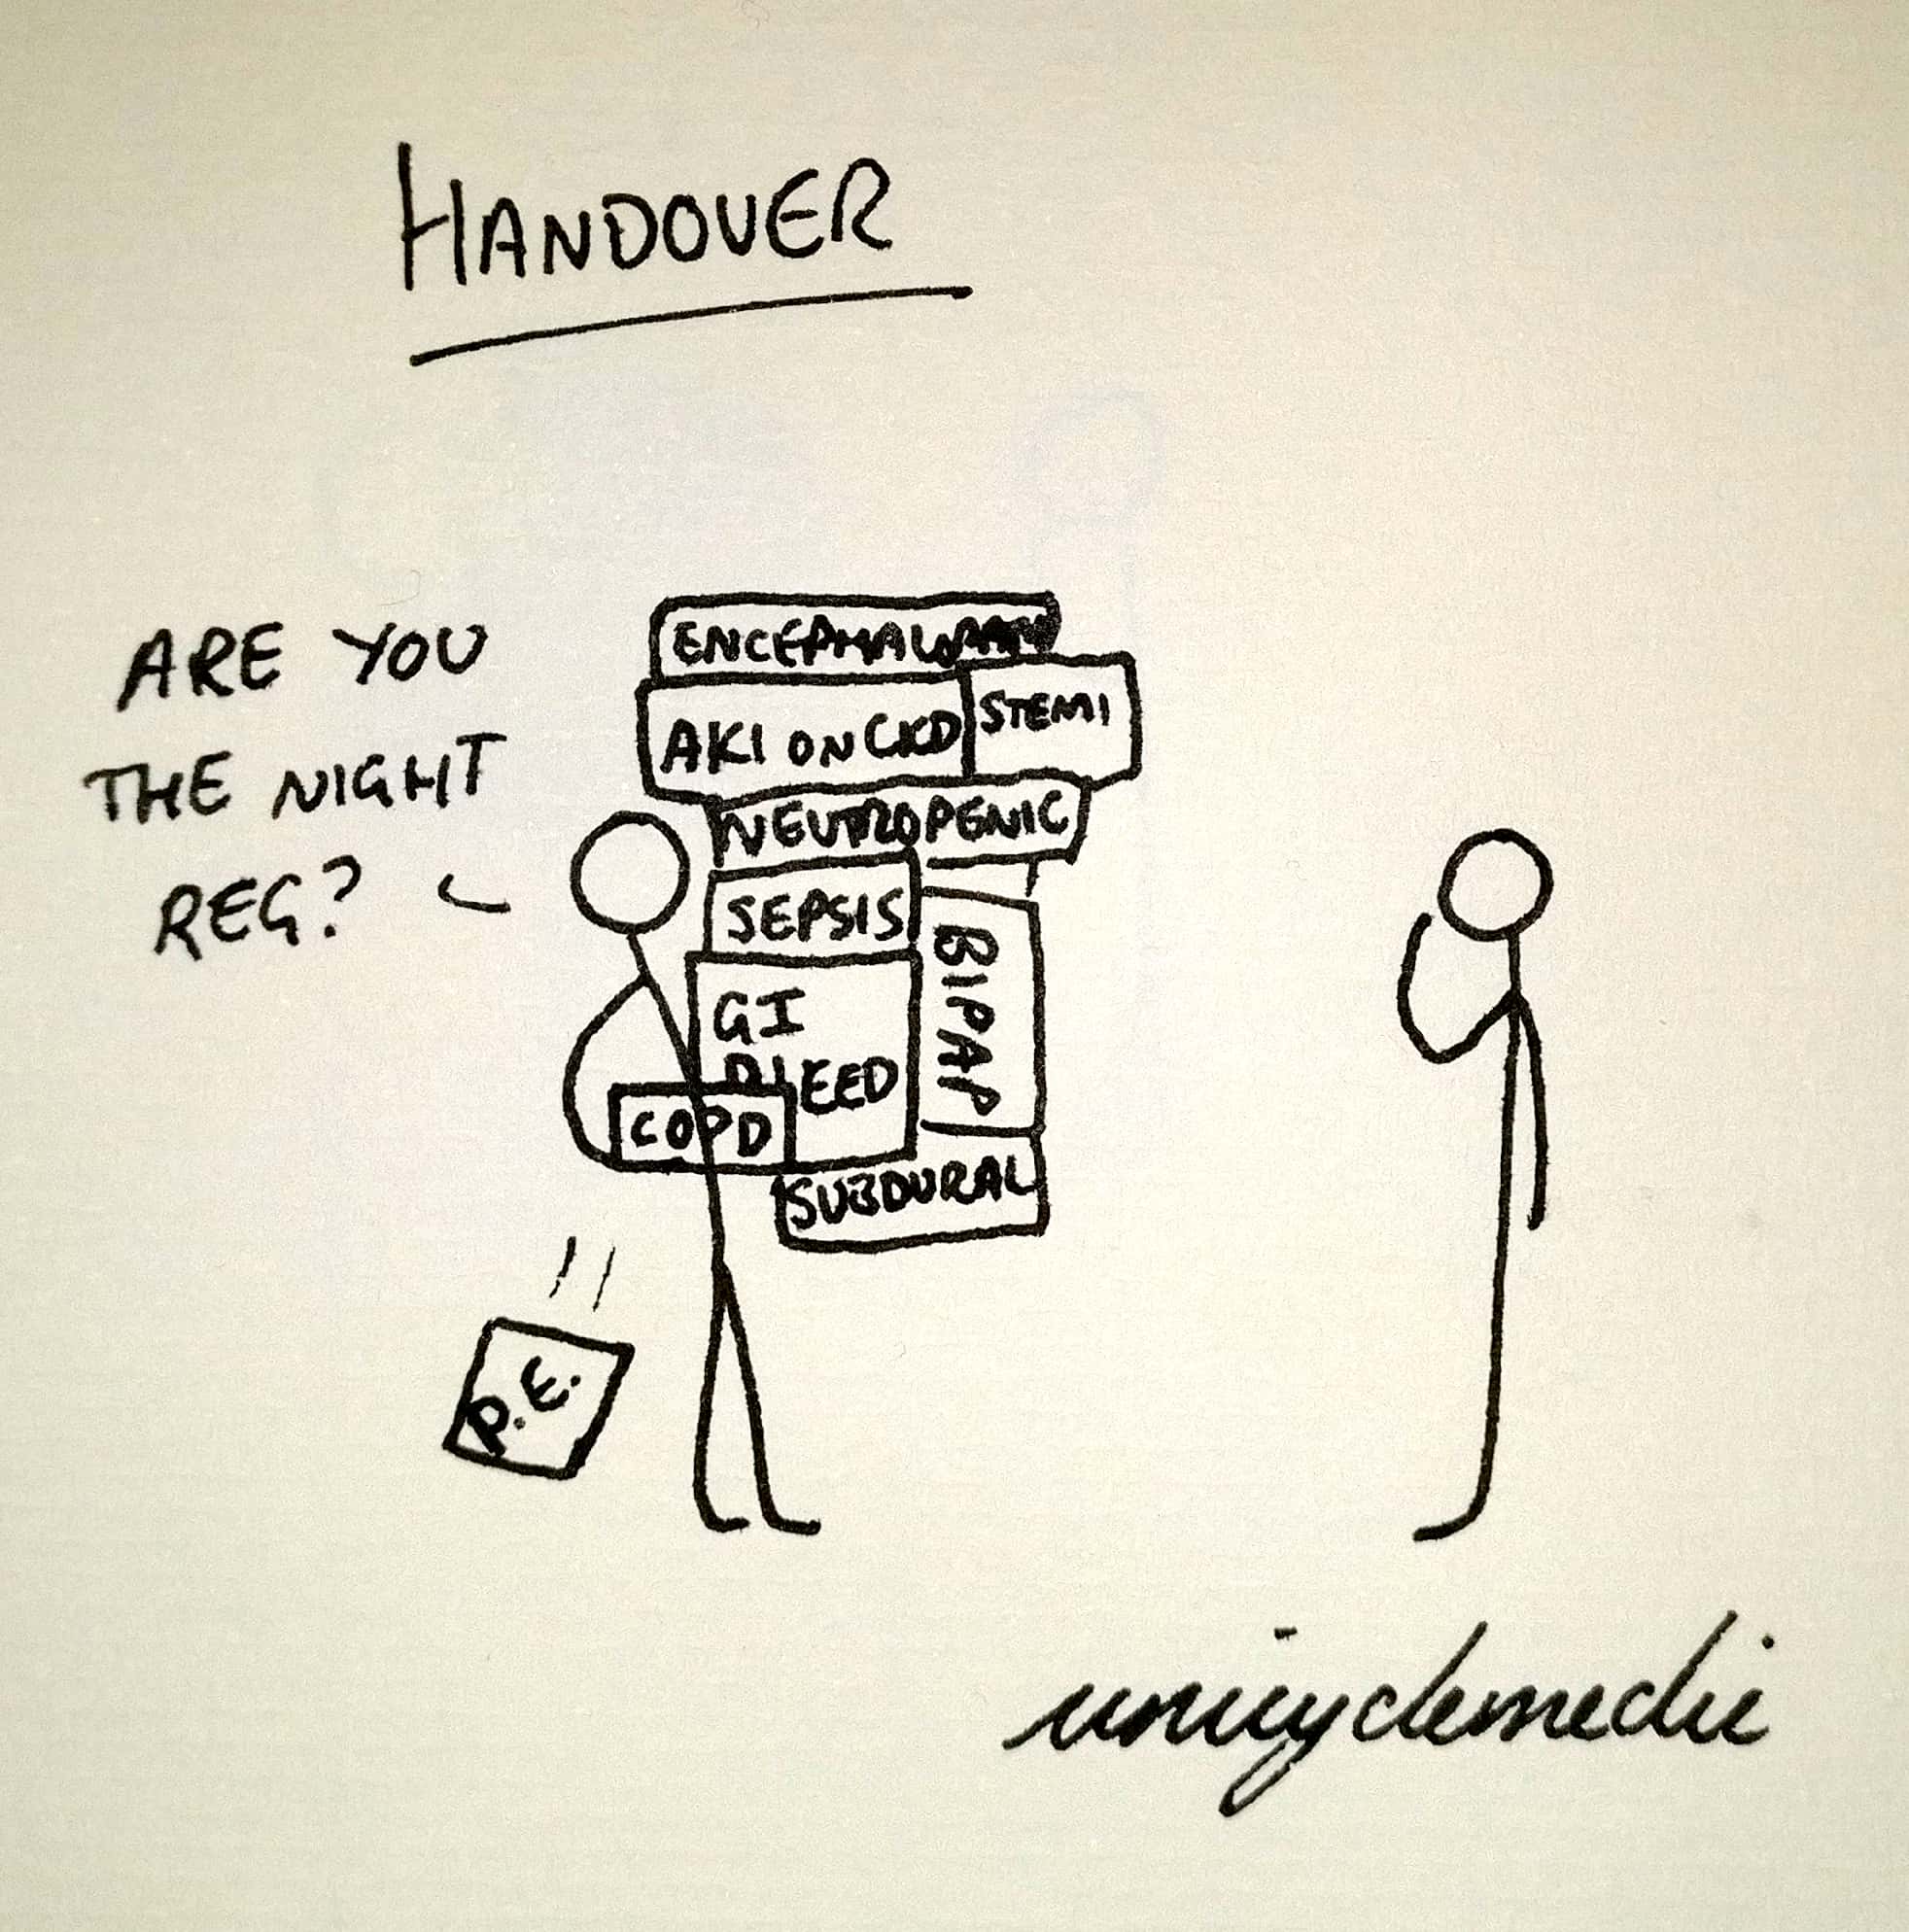 HANDOVER
ARE YOU
THE NIGHT
REG?
AKI ON CKD
STEMI
NEUTROPENIC
SEPSIS
BIPAP
GI
BLEED
COPD
SUBDURAL
P.E.
unicyclemedic